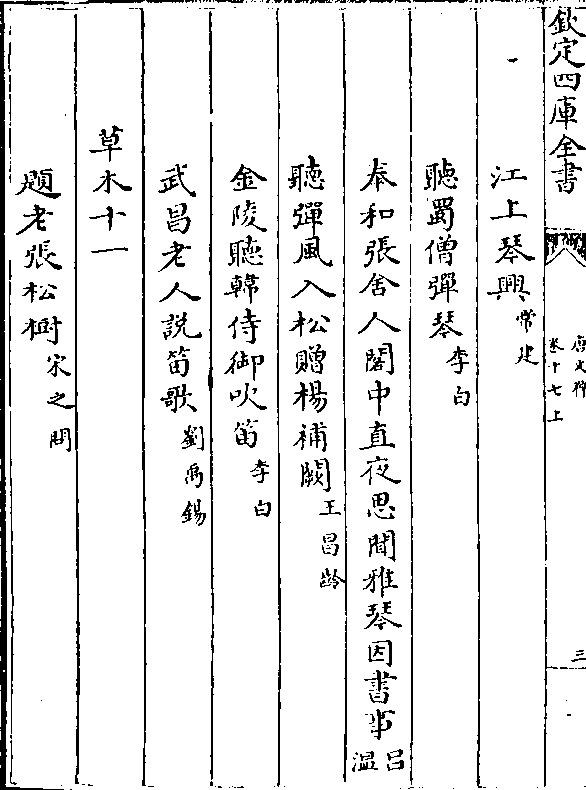 欽定四庫全書
唐文粹
卷十七上
三
江上琴興常建
聽蜀僧彈琴李白
奉和張舍人閣中直夜思聞雅琴因書事吕温
聽彈風入松贈楊補闕王昌齡
金陵聽韓侍御吹笛李白
武昌老人説笛歌劉禹錫
草木十一
題老張松樹宋之問